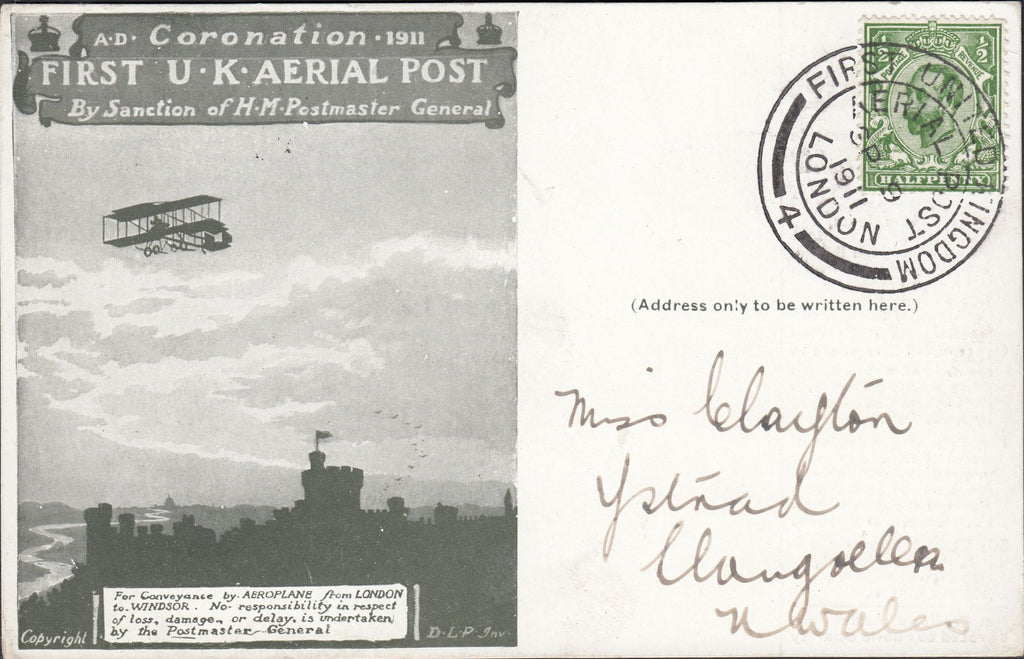 A·D· Coronation ·1911
FIRST U·K·AERIAL POST
By Sanction of H·M·Postmaster General
For Conveyance by AEROPLANE from LONDON
to WINDSOR. No responsibility in respect
of loss, damage, or delay, is undertaken
by the Postmaster General
Copyright
D·L·P·Inv.
½ POSTAGE REVENUE ½
HALFPENNY
FIRST UNITED KINGDOM
AERIAL POST
SP 9
1911
LONDON
4
(Address only to be written here.)
Miss Clayton
Ystrad
Llangollen
N Wales